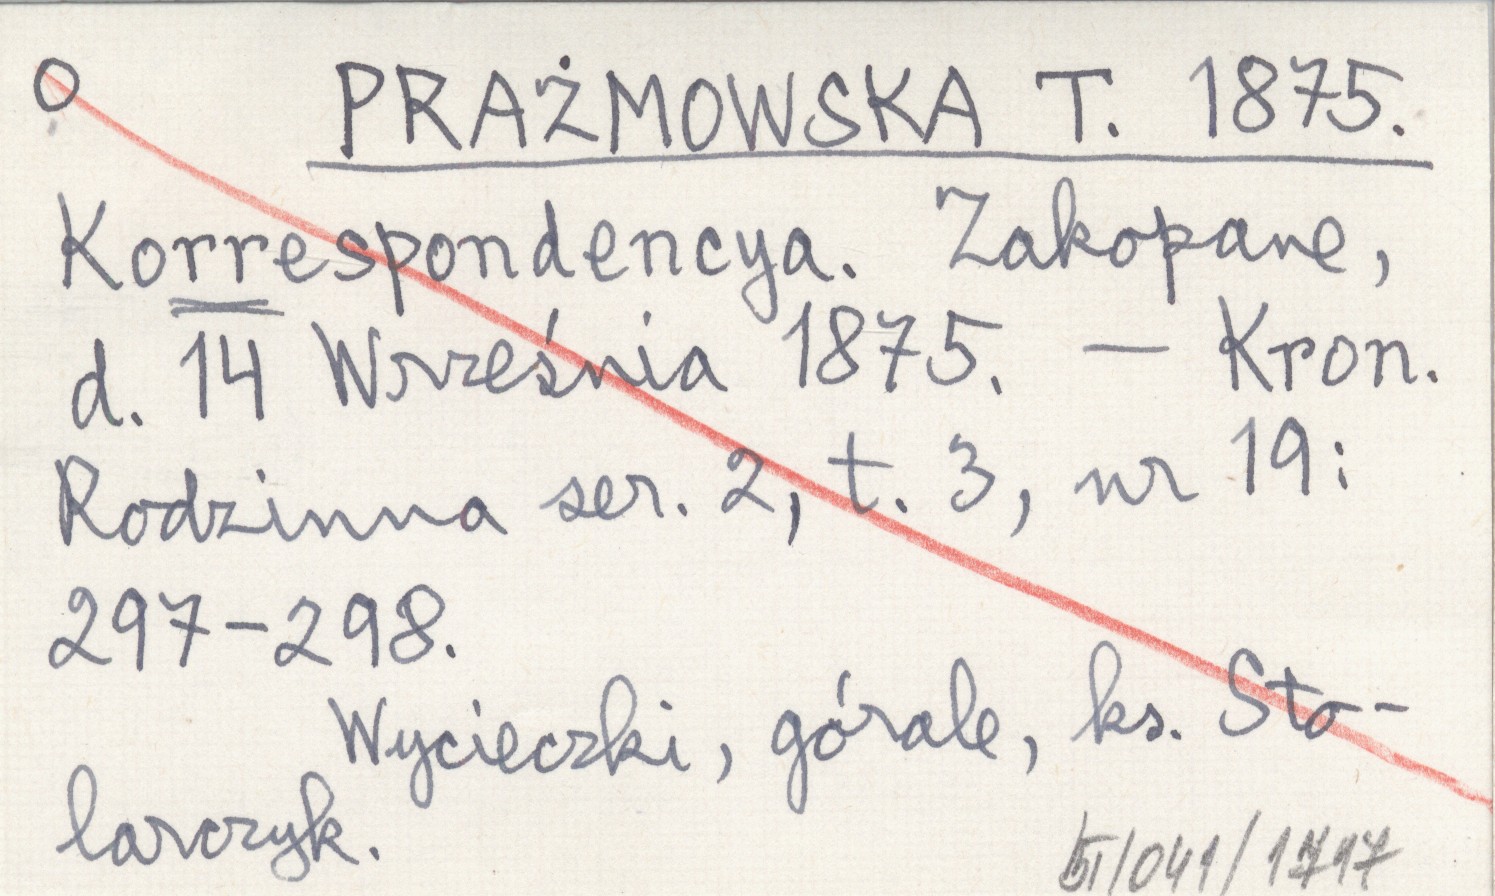 O PRAŻMOWSKA T. 1875.
Korrespondencya. Zakopane,
d. 14 Września 1875. — Kron.
Rodzinna ser. 2, t. 3, nr 19:
297-298.
Wycieczki, górale, ks. Sto-
larczyk.
/041/1717